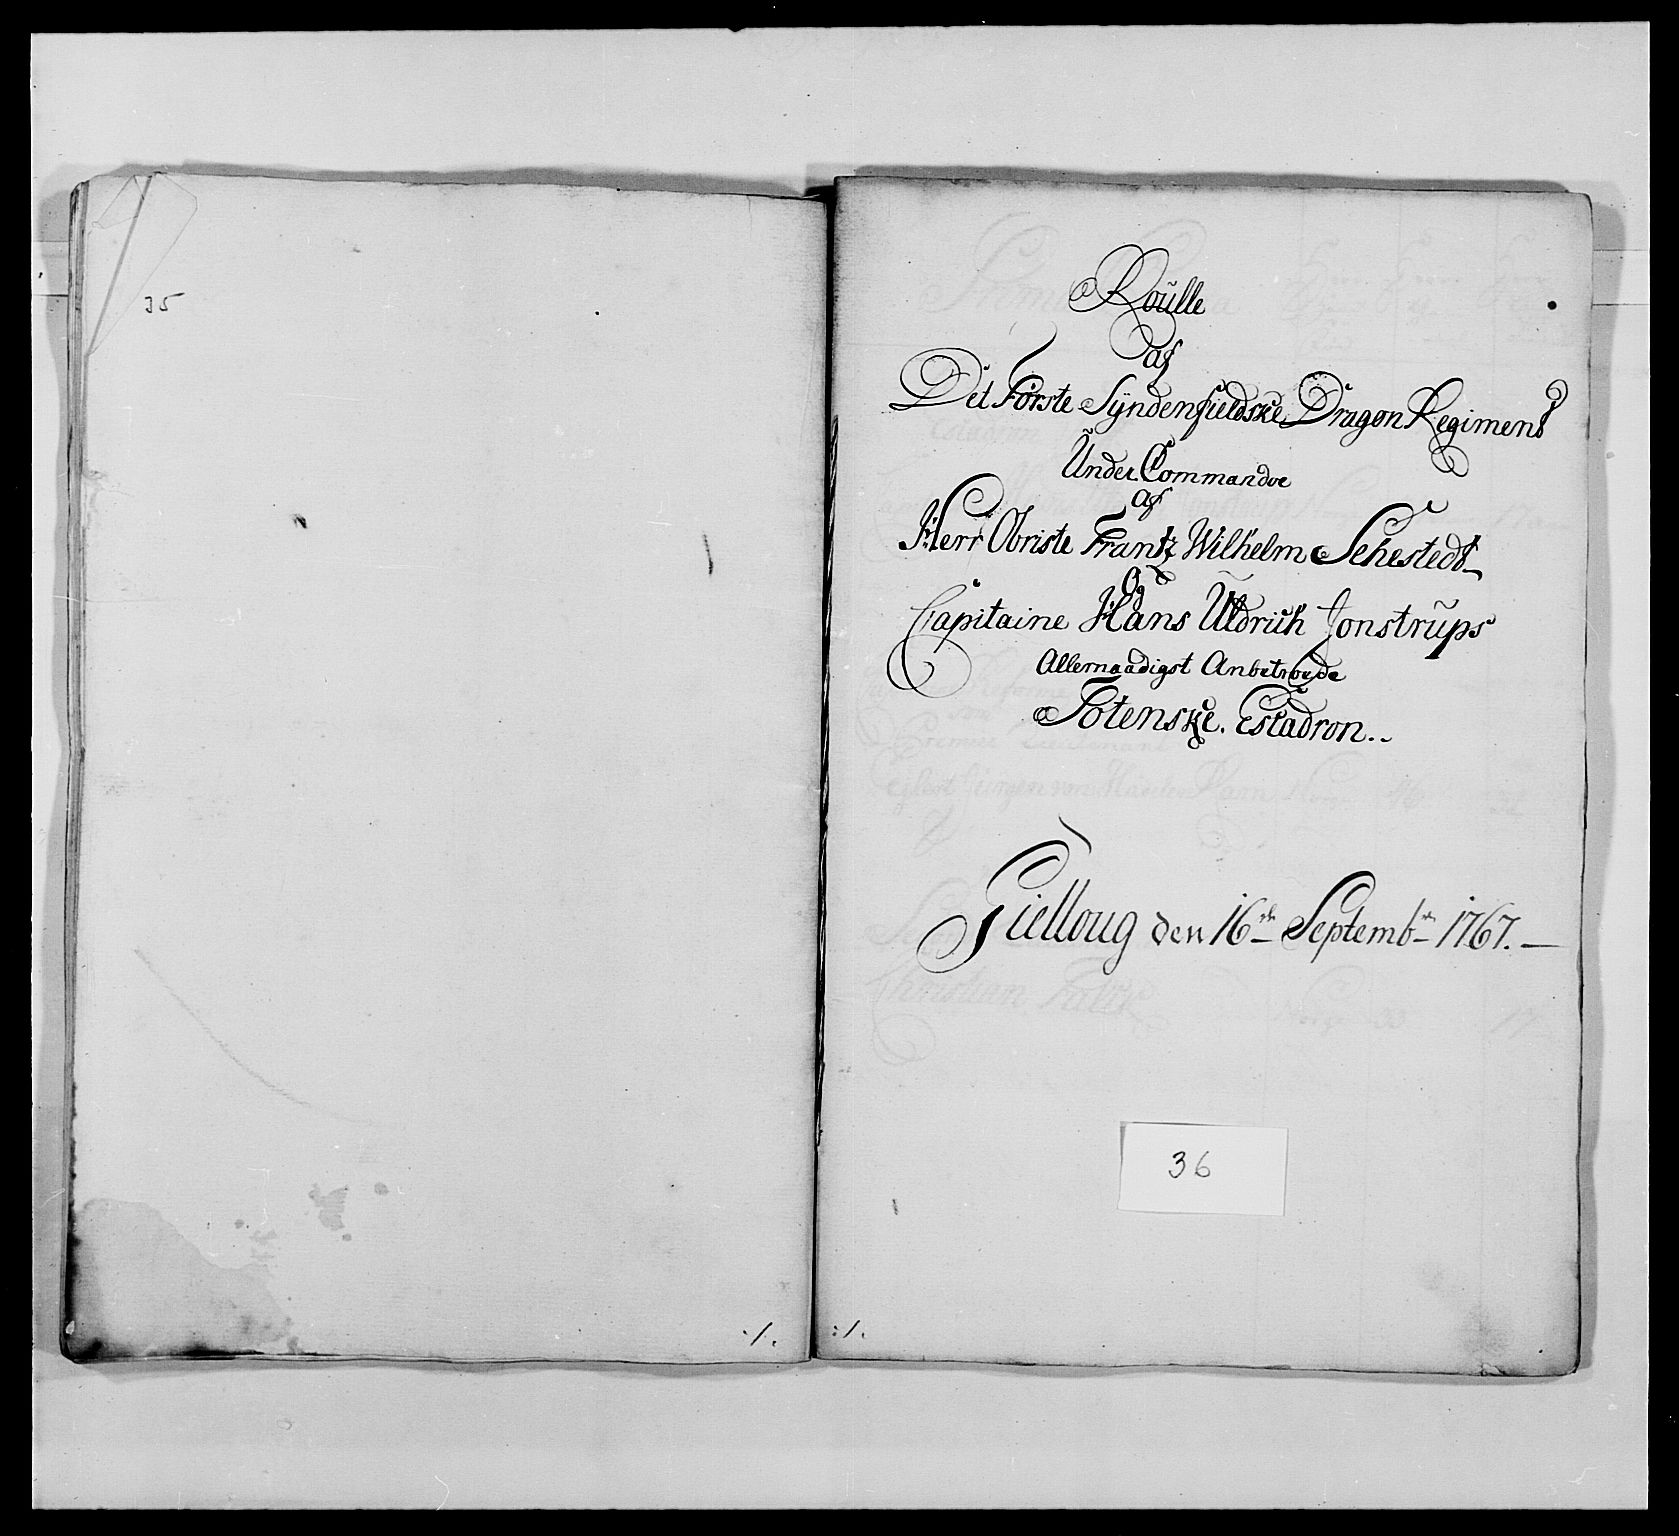 35
Roulle
af
Det Förste Syndenfieldske Dragon Regiment
Under Commandoe
af
Herr Obriste Frantz Wilhelm Sehestedt
Og
Capitaine Hans Uldrich Jonstrups
Allernaadigst Anbetroede
Totenske. Escadron..
Gielloug den 16de Septembr 1767.
36
./.
:/.